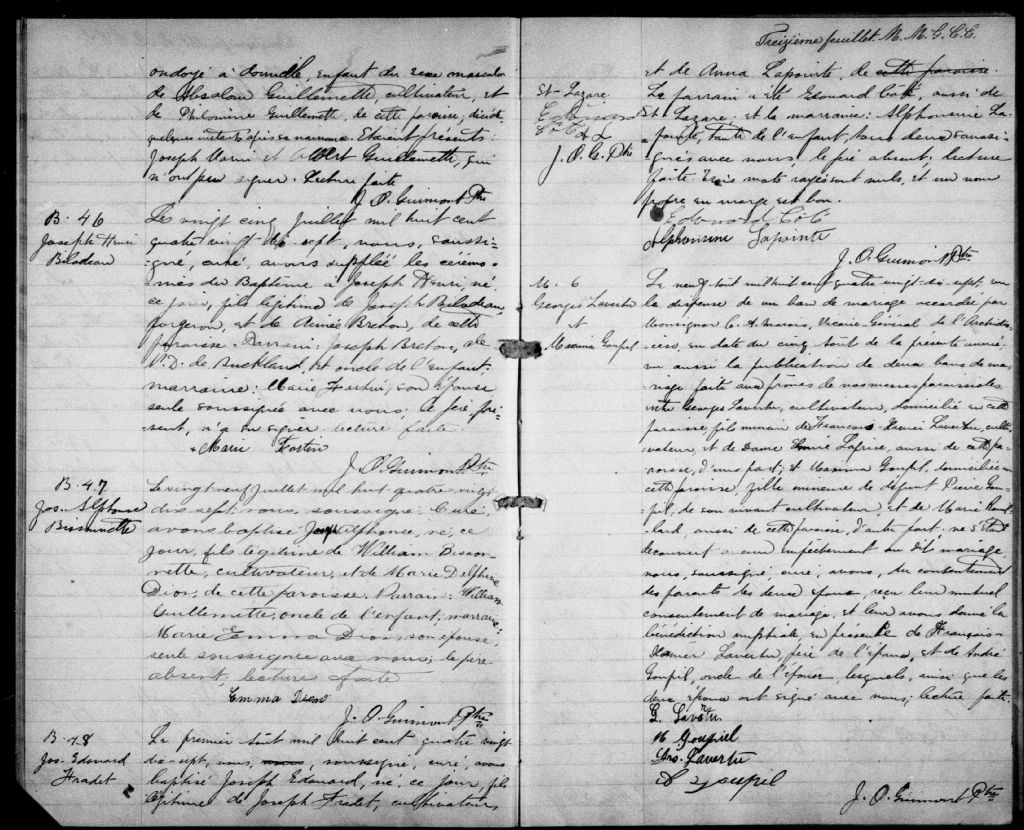 ondoyé à domicile, enfant du sexe masculin
de Absalon Guillemette, cultivateur, et
de Philomène Guillemette, de cette paroisse, décédé
quelques instants après sa naissance. Etaient présents:
Joseph Morin et Albert Guillemette, qui
n'ont pu signer. Lecture faite
J. O. Guimont Ptre
B. 46
Joseph Henri
Bilodeau
Le vingt cinq Juillet mil huit cent
quatre vingt dix sept, nous, soussi-
gné, curé, avons suppléé les cérémo-
nies du Baptême à Joseph Henri, né,
ce jour, fils légitime de Joseph Bilodeau,
forgeron, et de Aimée Breton, de cette
paroisse. Parrain: Joseph Breton, de
N. D. de Buckland, et oncle de l'enfant.
marraine: Marie Fortin, son épouse
seule soussignée avec nous; le père pré-
sent, n'a su signer lecture faite.
Marie Fortin
J. O. Guimont Ptre
B. 47
Jos. Alphonse
Bissonnette
Le vingt neuf Juillet mil huit quatre vingt
dix sept, nous, soussigné, Curé,
avons baptisé Joseph Alphonse, né, ce
jour, fils légitime de William Bisson-
nette, cultivateur, et de Marie Delphine
Dion, de cette paroisse. Parrain: William
Guillemette, oncle de l'enfant; marraine:
Marie Emma Dion, son épouse
seule soussignée avec nous; le père
absent, lecture faite
Emma Dion
J. O. Guimont Ptre
B. 48
Jos. Edouard
Fradet
Le premier Août mil huit cent quatre vingt
dix-sept, nous, soussigné, curé, avons
baptisé Joseph Edouard, né, ce jour, fils
légitime de Joseph Fradet, cultivateur,
Treizième feuillet. M. M. G. C. C.
et de Anna Lapointe, de cette paroisse.
St-Lazare
J. O. G. Ptre
Le parrain a été Edouard Coté, aussi de
St Lazare; et la marraine: Alphonsine La-
pointe, tante de l'enfant, tous deux soussi-
gnés avec nous, le père absent. lecture
faite. Trois mots rayés sont nuls, et un nom
propre en marge est bon.
Edouard Coté
Alphonsine Lapointe
J. O. Guimont Ptre
M. 6
Georges Lavertu
et
Maxima Goupil
Le neuf Août mil huit cent quatre vingt-dix sept, vu
la dispense de un ban de mariage accordée par
Monsignor C. A. Marois, Vicaire-Général de l'Archidio-
cèse, en date du cinq Août de la présente année,
vu aussi la publication de deux bans de ma-
riage faite aux prônes de nos messes paroissiales
entre Georges Lavertu, cultivateur, domicilié en cette
paroisse, fils mineur de François-Xavier Lavertu, culti-
vateur, et de Dame Lafrise, aussi de cette pa-
roisse, d'une part; et Maxima Goupil, domiciliée en
cette paroisse, fille mineure de défunt Pierre Gou-
pil, de son vivant cultivateur, et de Marie
aussi de cette paroisse, d'autre part; ne s'étant
découvert aucun empêchement au dit mariage,
nous, soussigné, curé, avons, du consentement
des parents les deux époux, reçu leur mutuel
consentement de mariage, et leur avons donné la
bénédiction nuptiale, en présence de François-
Xavier Lavertu, père de l'époux, et de André
Goupil, oncle de l'épouse, lesquels, ainsi que les
deux époux ont signé avec nous, lecture faite.
G. Lavertu
M Goupiel
Lavertu
Goupil
J. O. Guimont Ptre